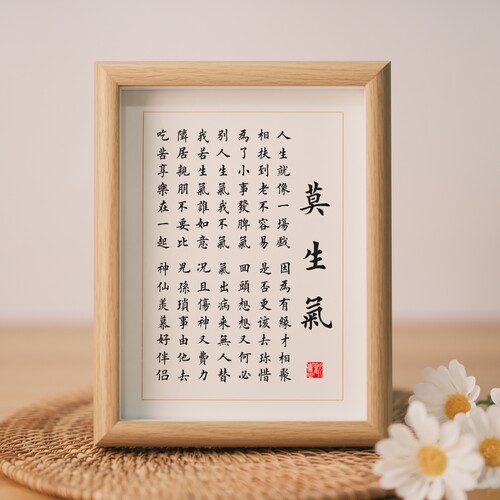 莫生氣
人生就像一場戲 因為有緣才相聚
相扶到老不容易 是否更該去珍惜
為了小事發脾氣 回頭想想又何必
別人生氣我不氣 氣出病來無人替
我若生氣誰如意 況且傷神又費力
隣居親朋不要比 兒孫瑣事由他去
吃苦享樂在一起 神仙羨慕好伴侶